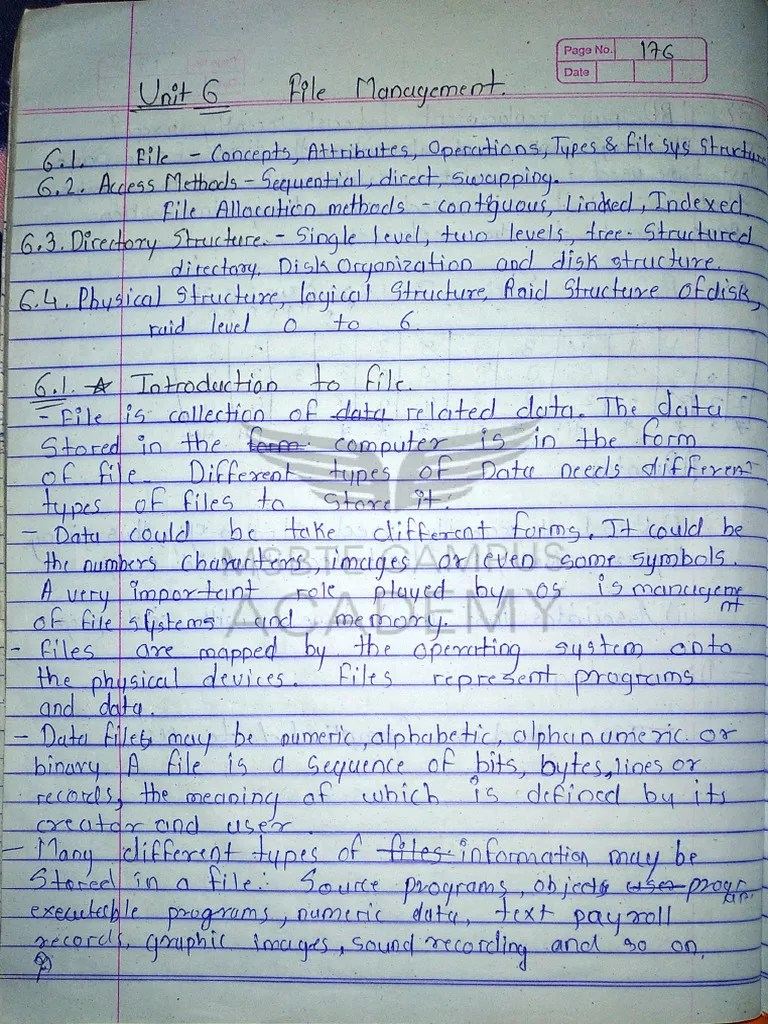 Page No. 176
Date
Unit 6 File Management.
6.1. File - Concepts, Attributes, Operations, Types & file sys structure
6.2. Access Methods - Sequential, direct, swapping.
File Allocation methods - contiguous, Linked, Indexed
6.3. Directory Structure. - Single level, two levels, tree-Structured
directory, Disk Organization and disk structure.
6.4. Physical Structure, logical Structure, Raid Structure of disk,
raid level 0 to 6.
6.1. ☆ Introduction to file.
- File is collection of data related data. The data
Stored in the form computer is in the form
of file. Different types of Data needs different
types of files to store it.
- Data could be take different forms. It could be
the numbers characters, images or even some symbols.
A very important role played by os is management
of file systems and memory.
- Files are mapped by the operating system onto
the physical devices. Files represent programs
and data.
- Data files may be numeric, alphabetic, alphanumeric or
binary. A file is a sequence of bits, bytes, lines or
records, the meaning of which is defined by its
creator and user.
- Many different types of files information may be
Stored in a file: Source programs, objects user program.
executable programs, numeric data, text payroll
records, graphic images, sound recording and so on.
MSBTE CAMPUS
ACADEMY